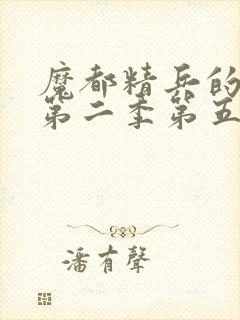 魔都精兵的
第二季第五
潘有聲